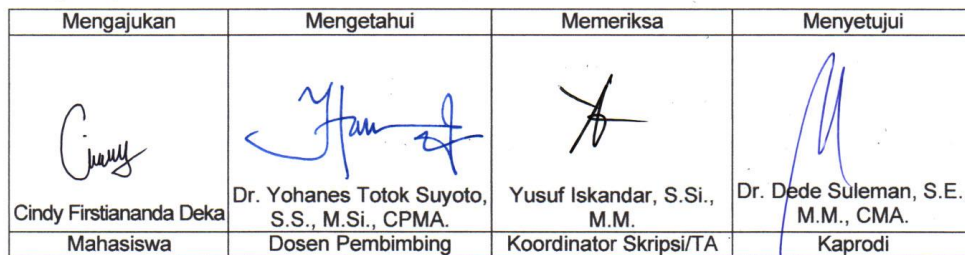 Mengajukan Mengetahui Memeriksa Menyetujui
Cindy Firstiananda Deka
Dr. Yohanes Totok Suyoto,
S.S., M.Si., CPMA.
Yusuf Iskandar, S.Si.,
M.M.
Dr. Dede Suleman, S.E.
M.M., CMA.
Mahasiswa Dosen Pembimbing Koordinator Skripsi/TA Kaprodi